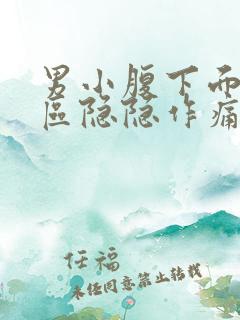 男小腹下而
區隐隐作痛
任福
未经同意禁止转载